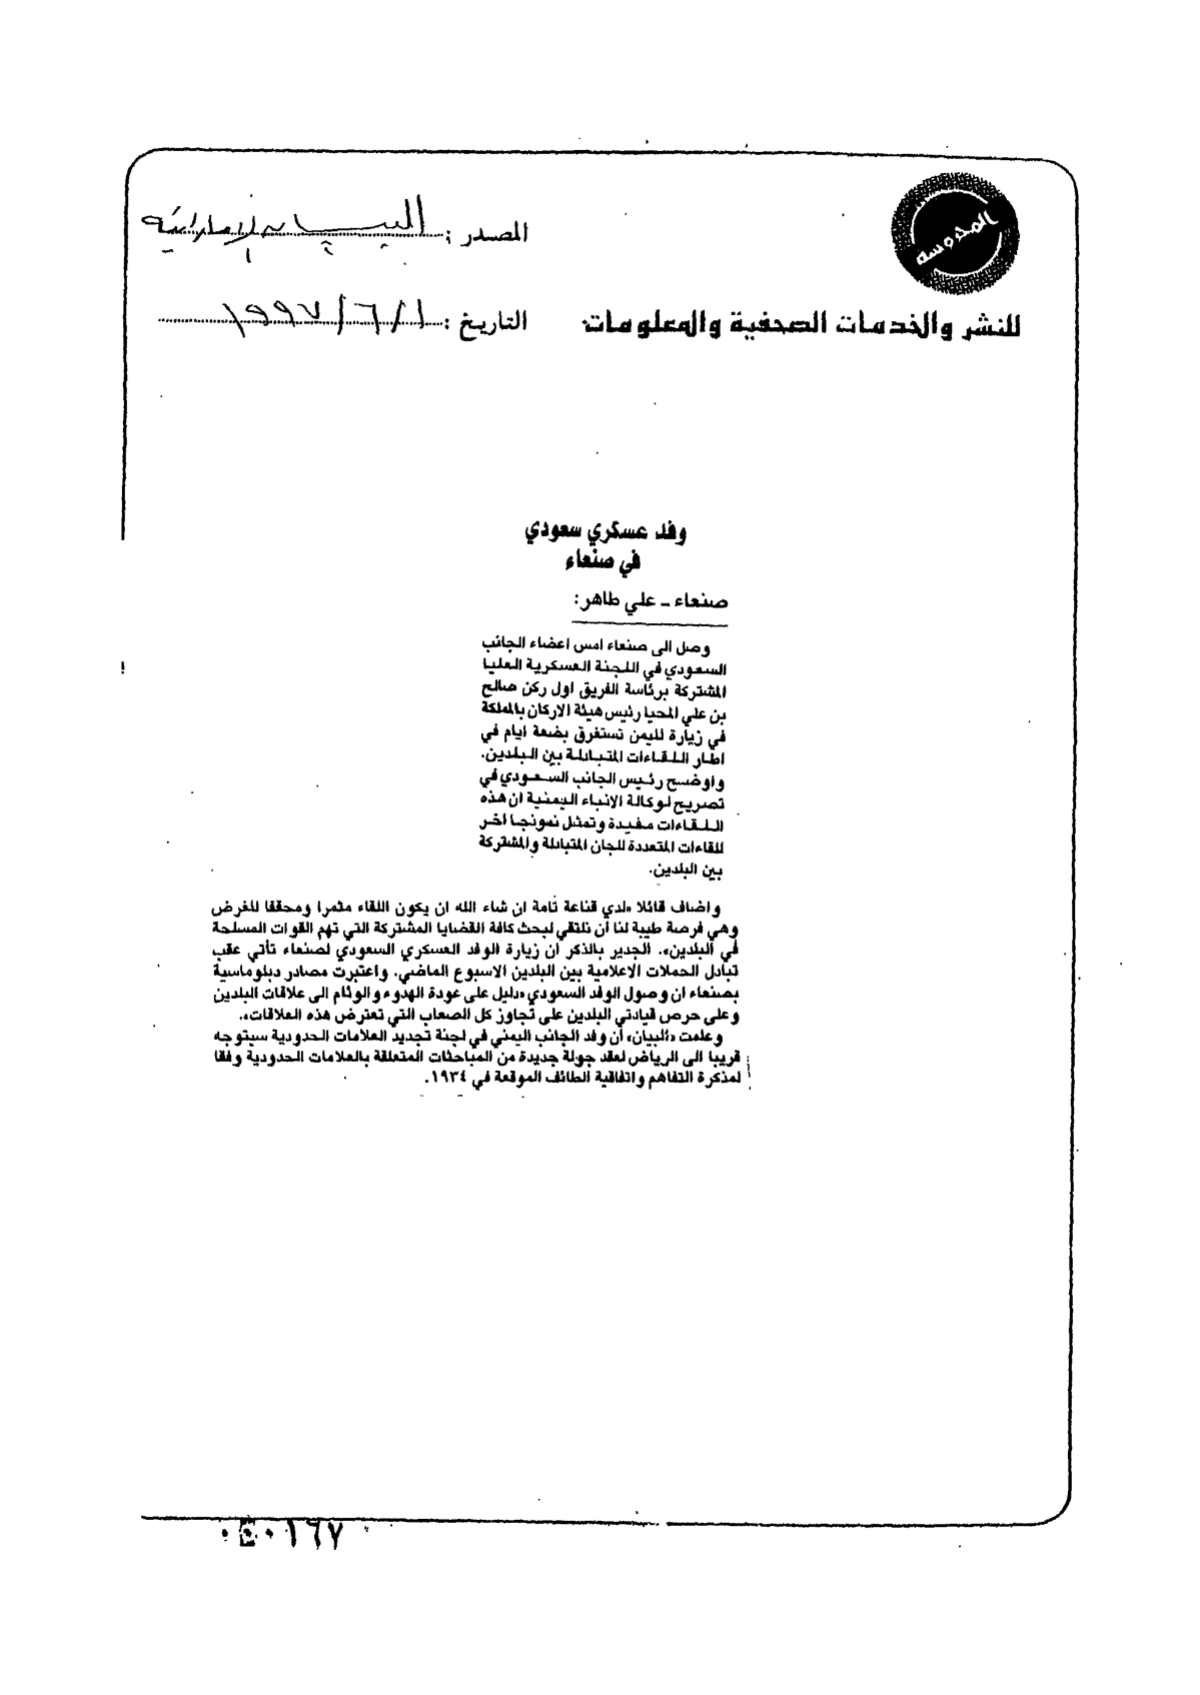 المحروسة
المصدر : البيان الإماراتية
للنشر والخدمات الصحفية والمعلومات
التاريخ : ١/٦/١٩٩٧
وفد عسكري سعودي
في صنعاء
صنعاء ـ علي طاهر:
وصل الى صنعاء امس اعضاء الجانب
السعودي في اللجنة العسكرية العليا
المشتركة برئاسة الفريق اول ركن صالح
بن علي المحيا رئيس هيئة الاركان بالمملكة
في زيارة لليمن تستغرق بضعة ايام في
اطار اللقاءات المتبادلة بين البلدين.
واوضح رئيس الجانب السعودي في
تصريح لوكالة الانباء اليمنية ان هذه
اللقاءات مفيدة وتمثل نموذجا اخر
للقاءات المتعددة للجان المتبادلة والمشتركة
بين البلدين.
واضاف قائلا «لدي قناعة تامة ان شاء الله ان يكون اللقاء مثمرا ومحققا للغرض
وهي فرصة طيبة لنا أن نلتقي لبحث كافة القضايا المشتركة التي تهم القوات المسلحة
في البلدين». الجدير بالذكر ان زيارة الوفد العسكري السعودي لصنعاء تأتي عقب
تبادل الحملات الاعلامية بين البلدين الاسبوع الماضي. واعتبرت مصادر دبلوماسية
بصنعاء ان وصول الوفد السعودي «دليل على عودة الهدوء والوئام الى علاقات البلدين
وعلى حرص قيادتي البلدين على تجاوز كل الصعاب التي تعترض هذه العلاقات».
وعلمت «البيان» أن وفد الجانب اليمني في لجنة تجديد العلامات الحدودية سيتوجه
قريبا الى الرياض لعقد جولة جديدة من المباحثات المتعلقة بالعلامات الحدودية وفقا
لمذكرة التفاهم واتفاقية الطائف الموقعة في ١٩٣٤.